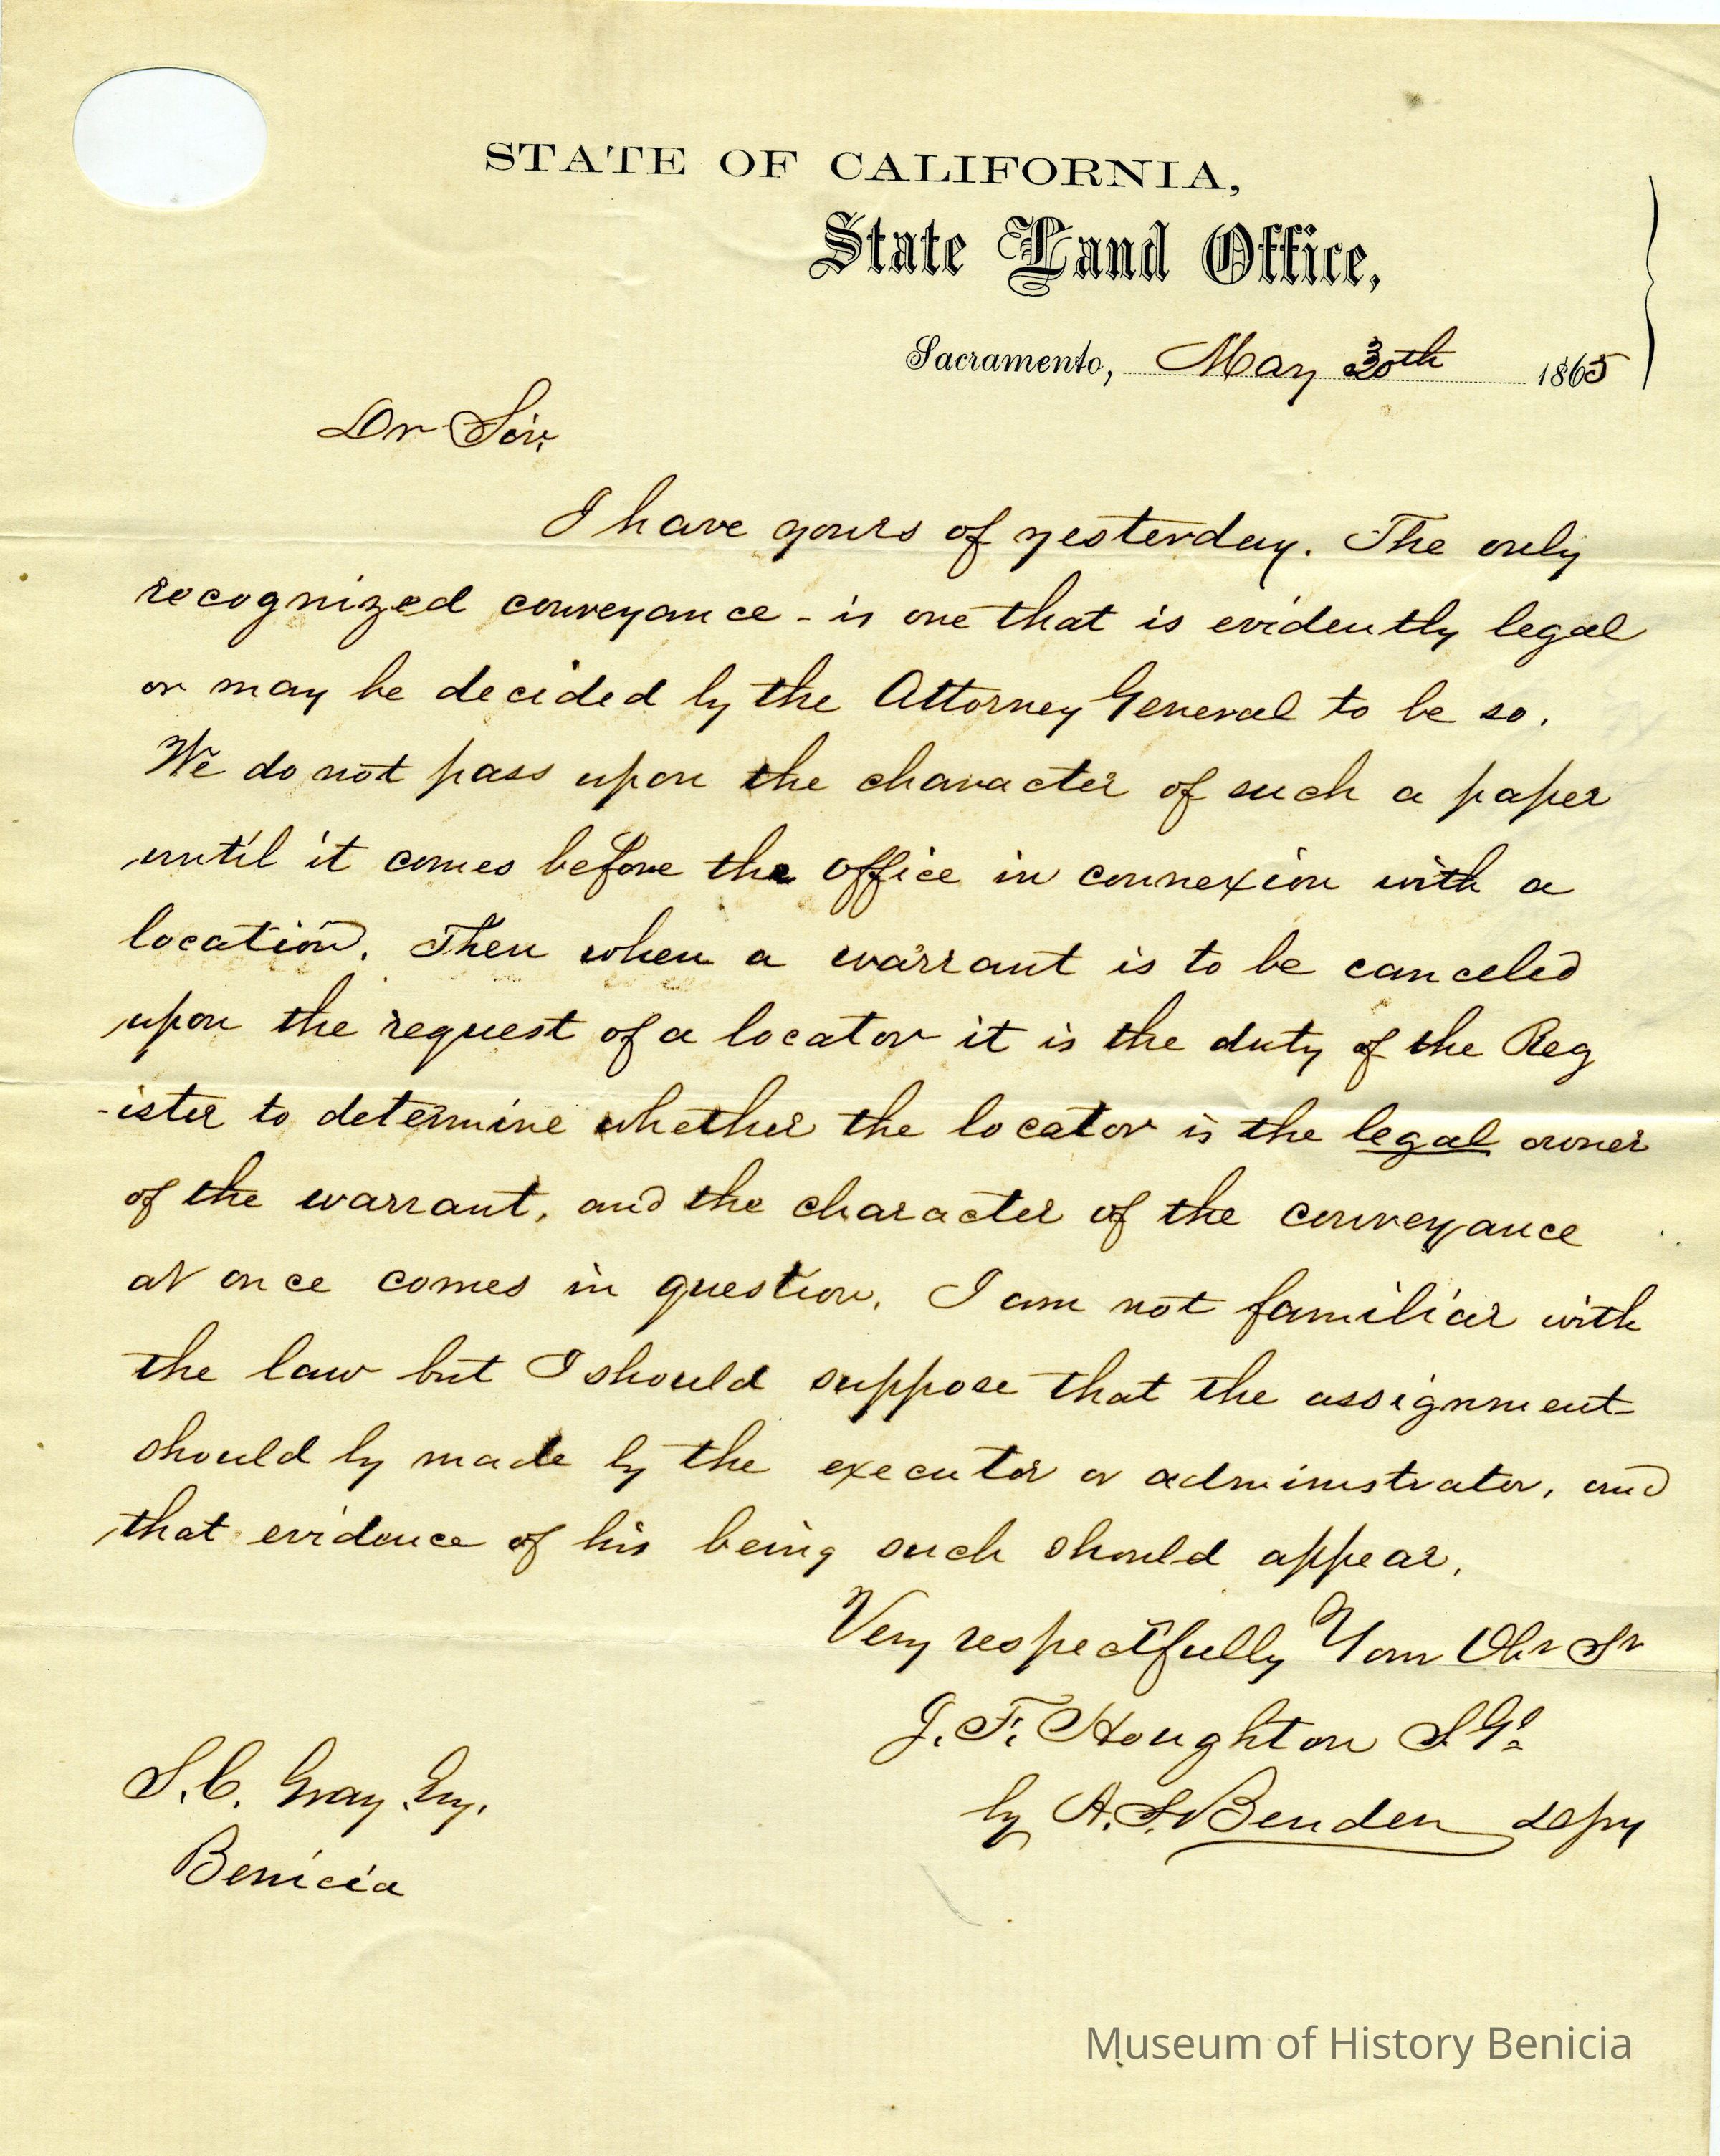 STATE OF CALIFORNIA,
State Land Office,
Sacramento, May 30th 1865
Dr Sir,
I have yours of yesterday. The only
recognized conveyance - is one that is evidently legal
or may be decided by the Attorney General to be so.
We do not pass upon the character of such a paper
until it comes before the office in connexion with a
location. Then when a warrant is to be canceled
upon the request of a locator it is the duty of the Reg
-ister to determine whether the locator is the legal owner
of the warrant, and the character of the conveyance
at once comes in question. I am not familiar with
the law but I should suppose that the assignment
should by made by the executor or administrator, and
that evidence of his being such should appear.
Very respectfully Your Obt St
J. F. Houghton S. Gl
by A. S. Bender depy
S. C. Gray Esq.
Benicia
Museum of History Benicia